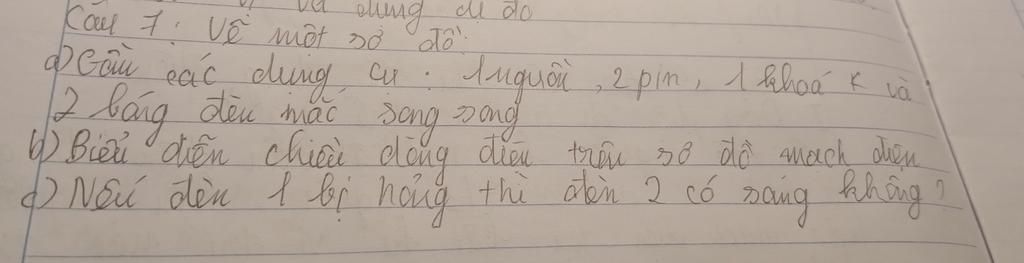 và dụng cụ đo
Câu 7: Vẽ một sơ đồ:
a) Gồm các dụng cụ: 1 nguồn, 2 pin, 1 khoá K và
2 bóng đèn mắc song song
b) Biểu diễn chiều dòng điện trên sơ đồ mạch điện
c) Nếu đèn 1 bị hỏng thì đèn 2 có sáng không?